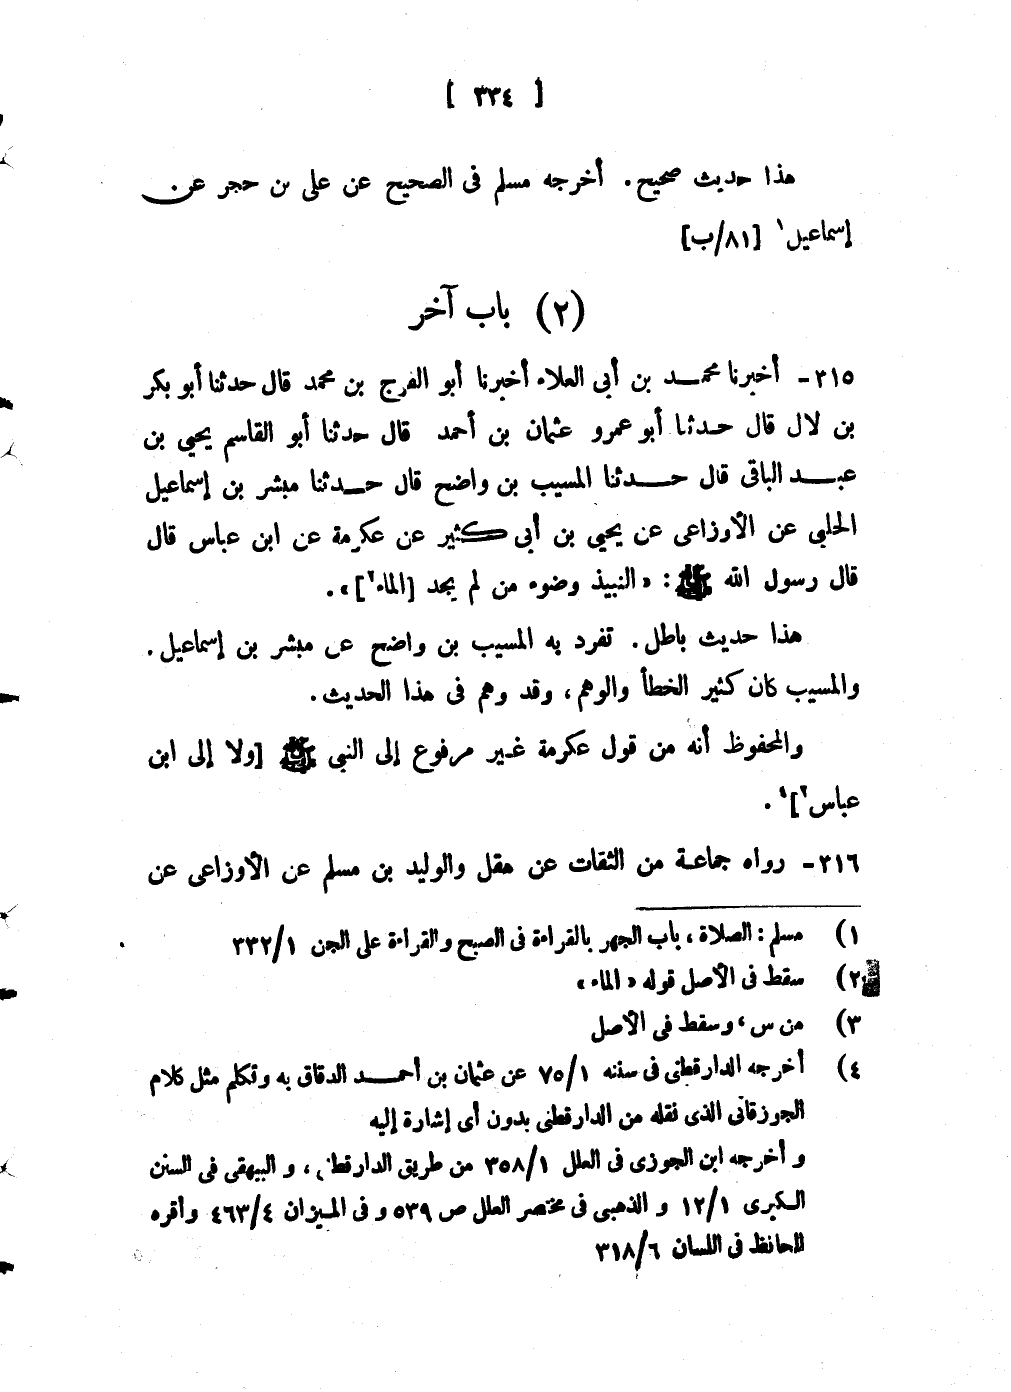 [ ٣٣٤ ]
هذا حديث صحيح. أخرجه مسلم فى الصحيح عن على بن حجر عن
إسماعيل١ [٨١/ب]
(٢) باب آخر
٣١٥- أخبرنا محمد بن أبى العلاء أخبرنا أبو الفرج بن محمد قال حدثنا أبو بكر
بن لال قال حدثنا أبو عمرو عثمان بن أحمد قال حدثنا أبو القاسم يحيى بن
عبد الباقى قال حدثنا المسيب بن واضح قال حدثنا مبشر بن إسماعيل
الحلبى عن الأوزاعى عن يحيى بن أبى كثير عن عكرمة عن ابن عباس قال
قال رسول الله ﷺ: «النبيذ وضوء من لم يجد [الماء٢]».
هذا حديث باطل. تفرد به المسيب بن واضح عن مبشر بن إسماعيل.
والمسيب كان كثير الخطأ والوهم، وقد وهم فى هذا الحديث.
والمحفوظ أنه من قول عكرمة غير مرفوع إلى النبى ﷺ [ولا إلى ابن
عباس٣]٤.
٣١٦- رواه جماعة من الثقات عن هقل والوليد بن مسلم عن الأوزاعى عن
١) مسلم: الصلاة، باب الجهر بالقراءة فى الصبح والقراءة على الجن ٣٣٢/١
٢) سقط فى الأصل قوله «الماء»
٣) من س، وسقط فى الأصل
٤) أخرجه الدارقطنى فى سننه ٧٥/١ عن عثمان بن أحمد الدقاق به وتكلم مثل كلام
الجوزقانى الذى نقله من الدارقطنى بدون أى إشارة إليه
و أخرجه ابن الجوزى فى العلل ٣٥٨/١ من طريق الدارقطنى، و البيهقى فى السنن
الكبرى ١٢/١ و الذهبى فى مختصر العلل ص ٥٣٩ و فى الميزان ٤٦٣/٤ وأقره
الحافظ فى اللسان ٣١٨/٦